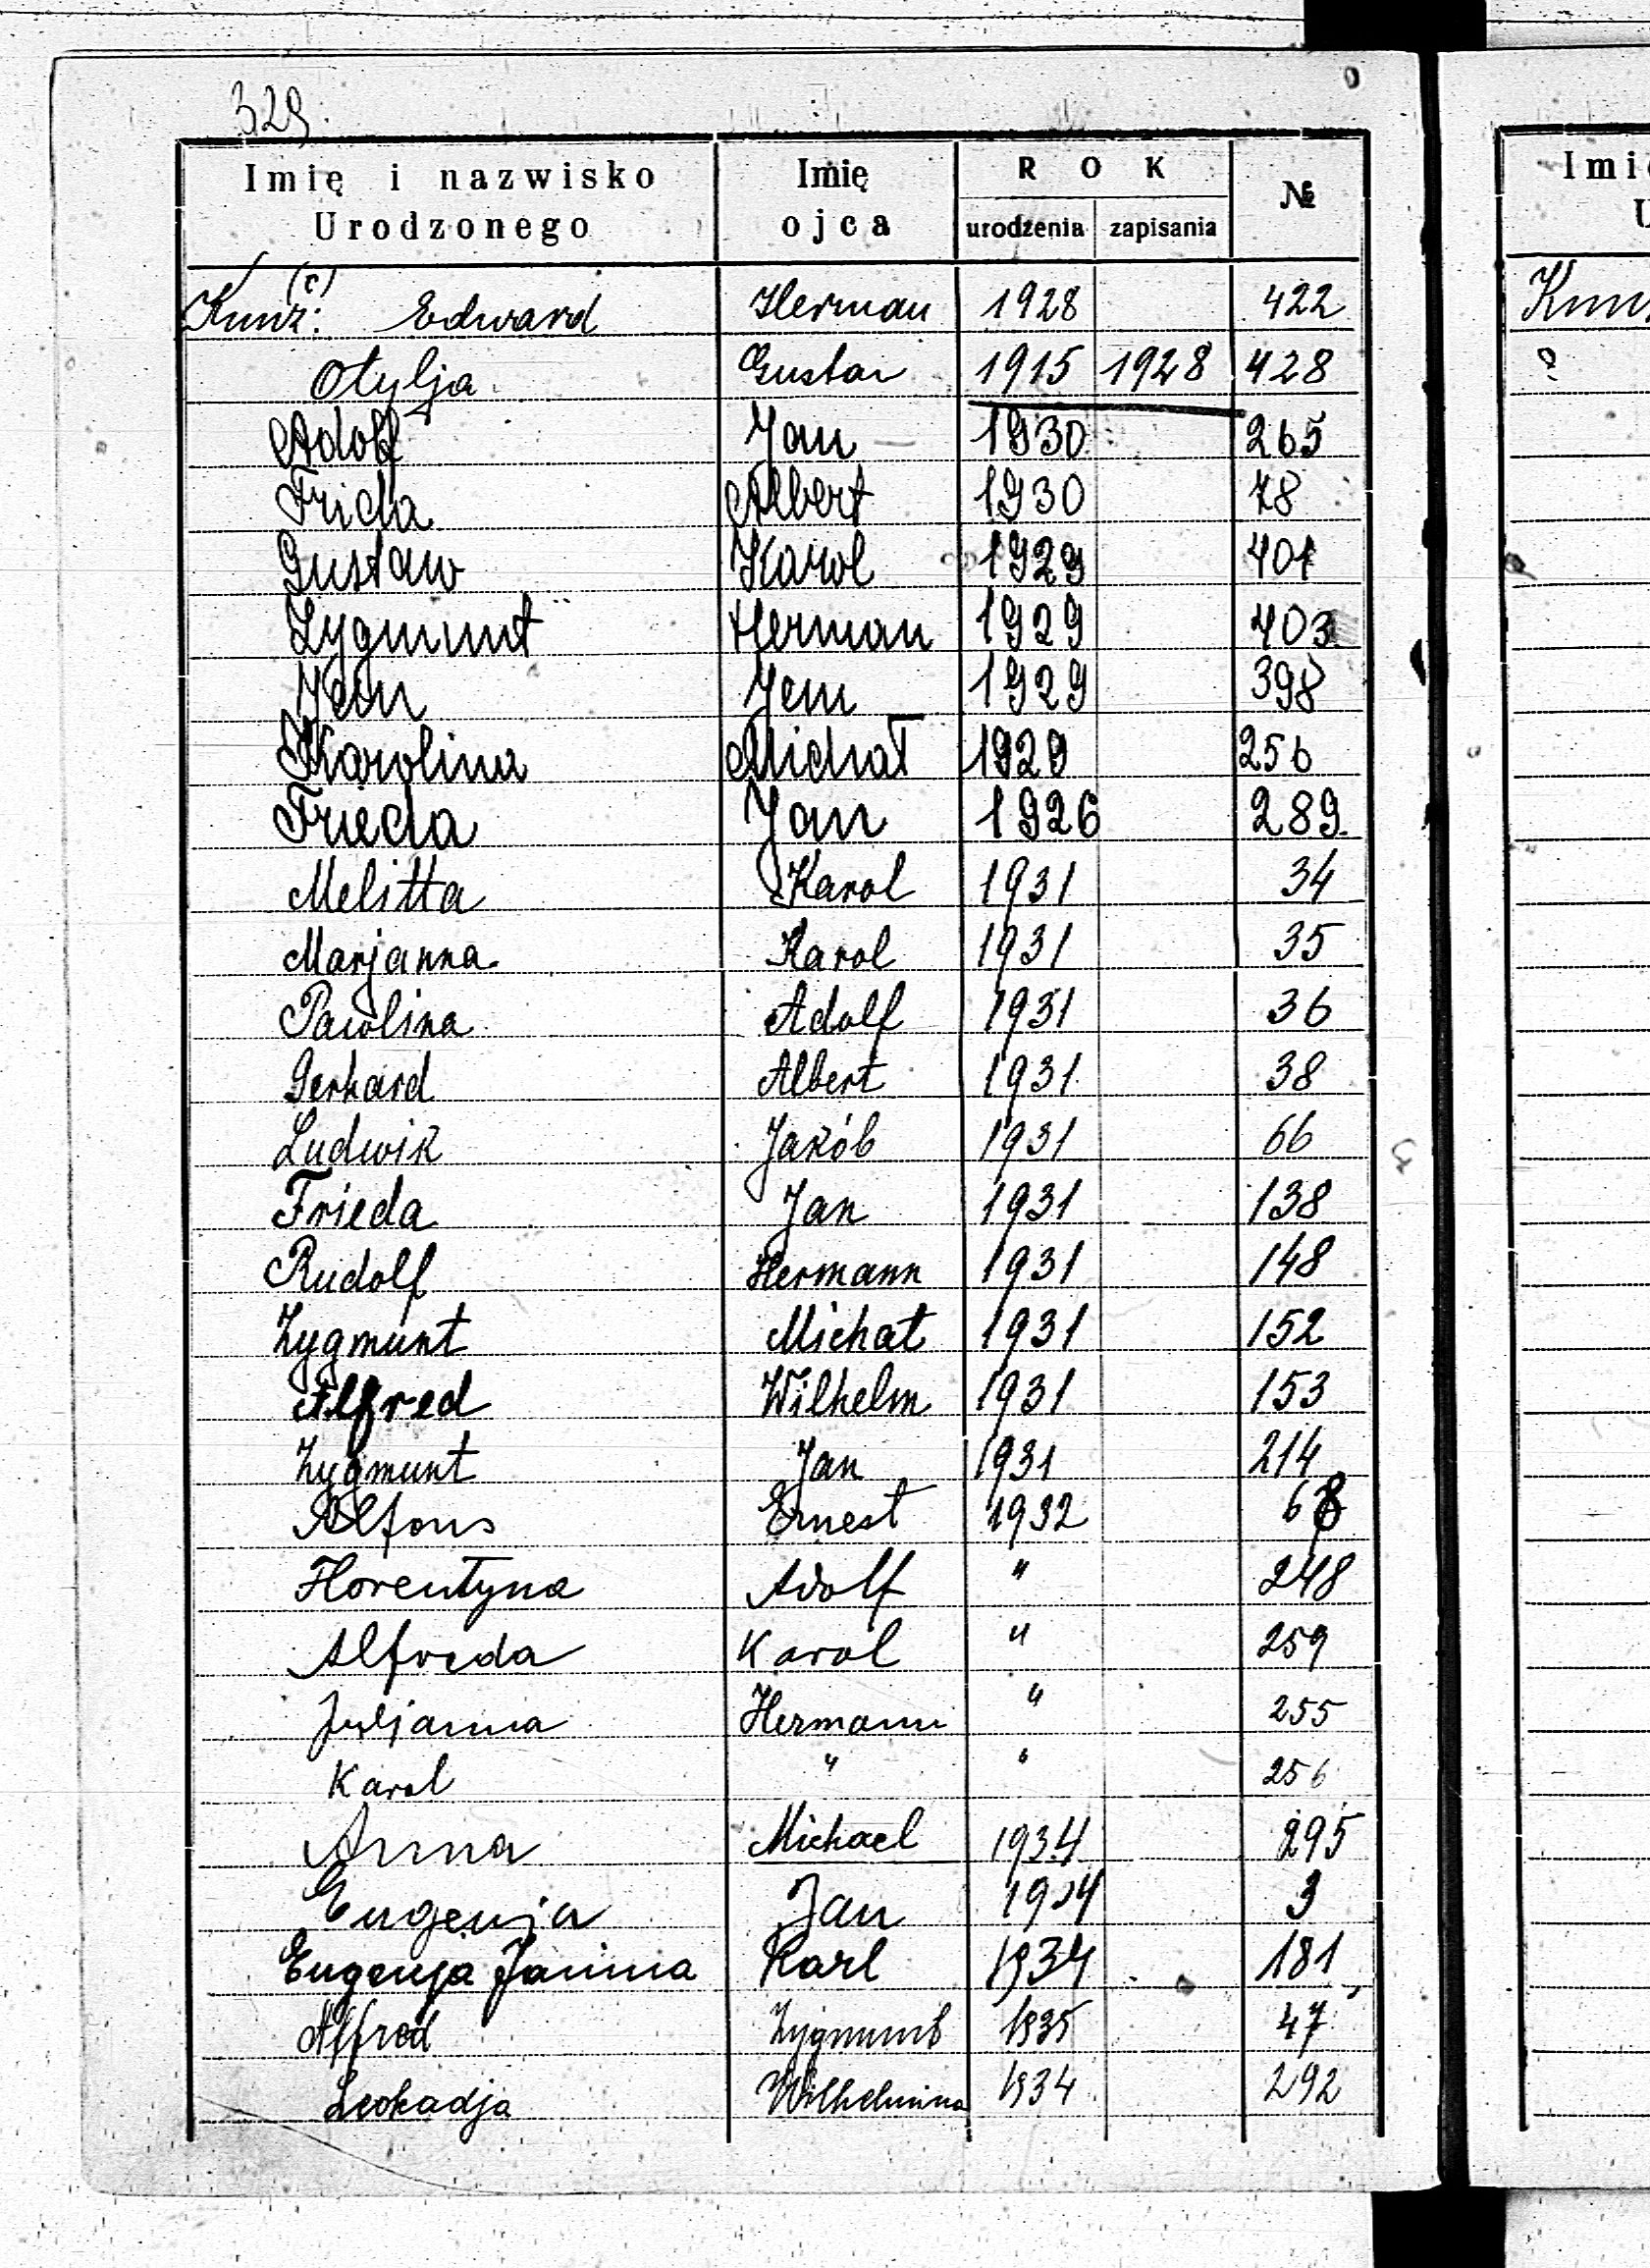 329.
Imię i nazwisko Urodzonego Imię ojca ROK urodzenia zapisania №
Imi
U
(c)
Kunz: Edward Herman 1928 422
Otylja Gustaw 1915 1928 428
Adolf Jan 1930 265
Frida Albert 1930 78
Gustaw Karol 1929 401
Zygmunt Herman 1929 403
Jan Jan 1929 398
Karolina Michał 1929 256
Frieda Jan 1926 289
Melitta Karol 1931 34
Marjanna Karol 1931 35
Pawlina Adolf 1931 36
Gerhard Albert 1931 38
Ludwik Jakób 1931 66
Frieda Jan 1931 138
Rudolf Hermann 1931 148
Zygmunt Michał 1931 152
Alfred Wilhelm 1931 153
Zygmunt Jan 1931 214
Alfons Ernest 1932 68
Florentyna Adolf " 248
Alfreda Karol " 259
Juljanna Hermann " 255
Karol " " 256
Anna Michael 1934 295
Eugenja Jan 3
Eugenja Janina Karl 1934 181
Alfred Zygmunt 1935 47
Leokadja Wilhelmina 1934 292